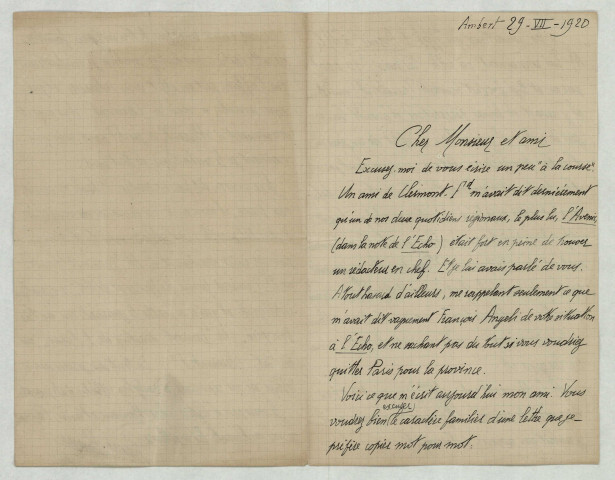 Ambert 29-VII-1920
Cher Monsieur et ami
Excusez-moi de vous écrire un peu "à la course".
Un ami de Clermont-Fd m'avait dit dernièrement
qu'un de nos deux quotidiens régionaux, le plus lu, l'Avenir,
(dans la note de l'Echo) était fort en peine de trouver
un rédacteur en chef. Et je lui avais parlé de vous.
A tout hasard d'ailleurs, me rappelant seulement ce que
m'avait dit vaguement François Angeli de votre situation
à l'Echo, et ne sachant pas du tout si vous voudriez
quitter Paris pour la province.
Voici ce que m'écrit aujourd'hui mon ami. Vous
voudrez bien excuser le caractère familier d'une lettre que je
préfère copier mot pour mot.